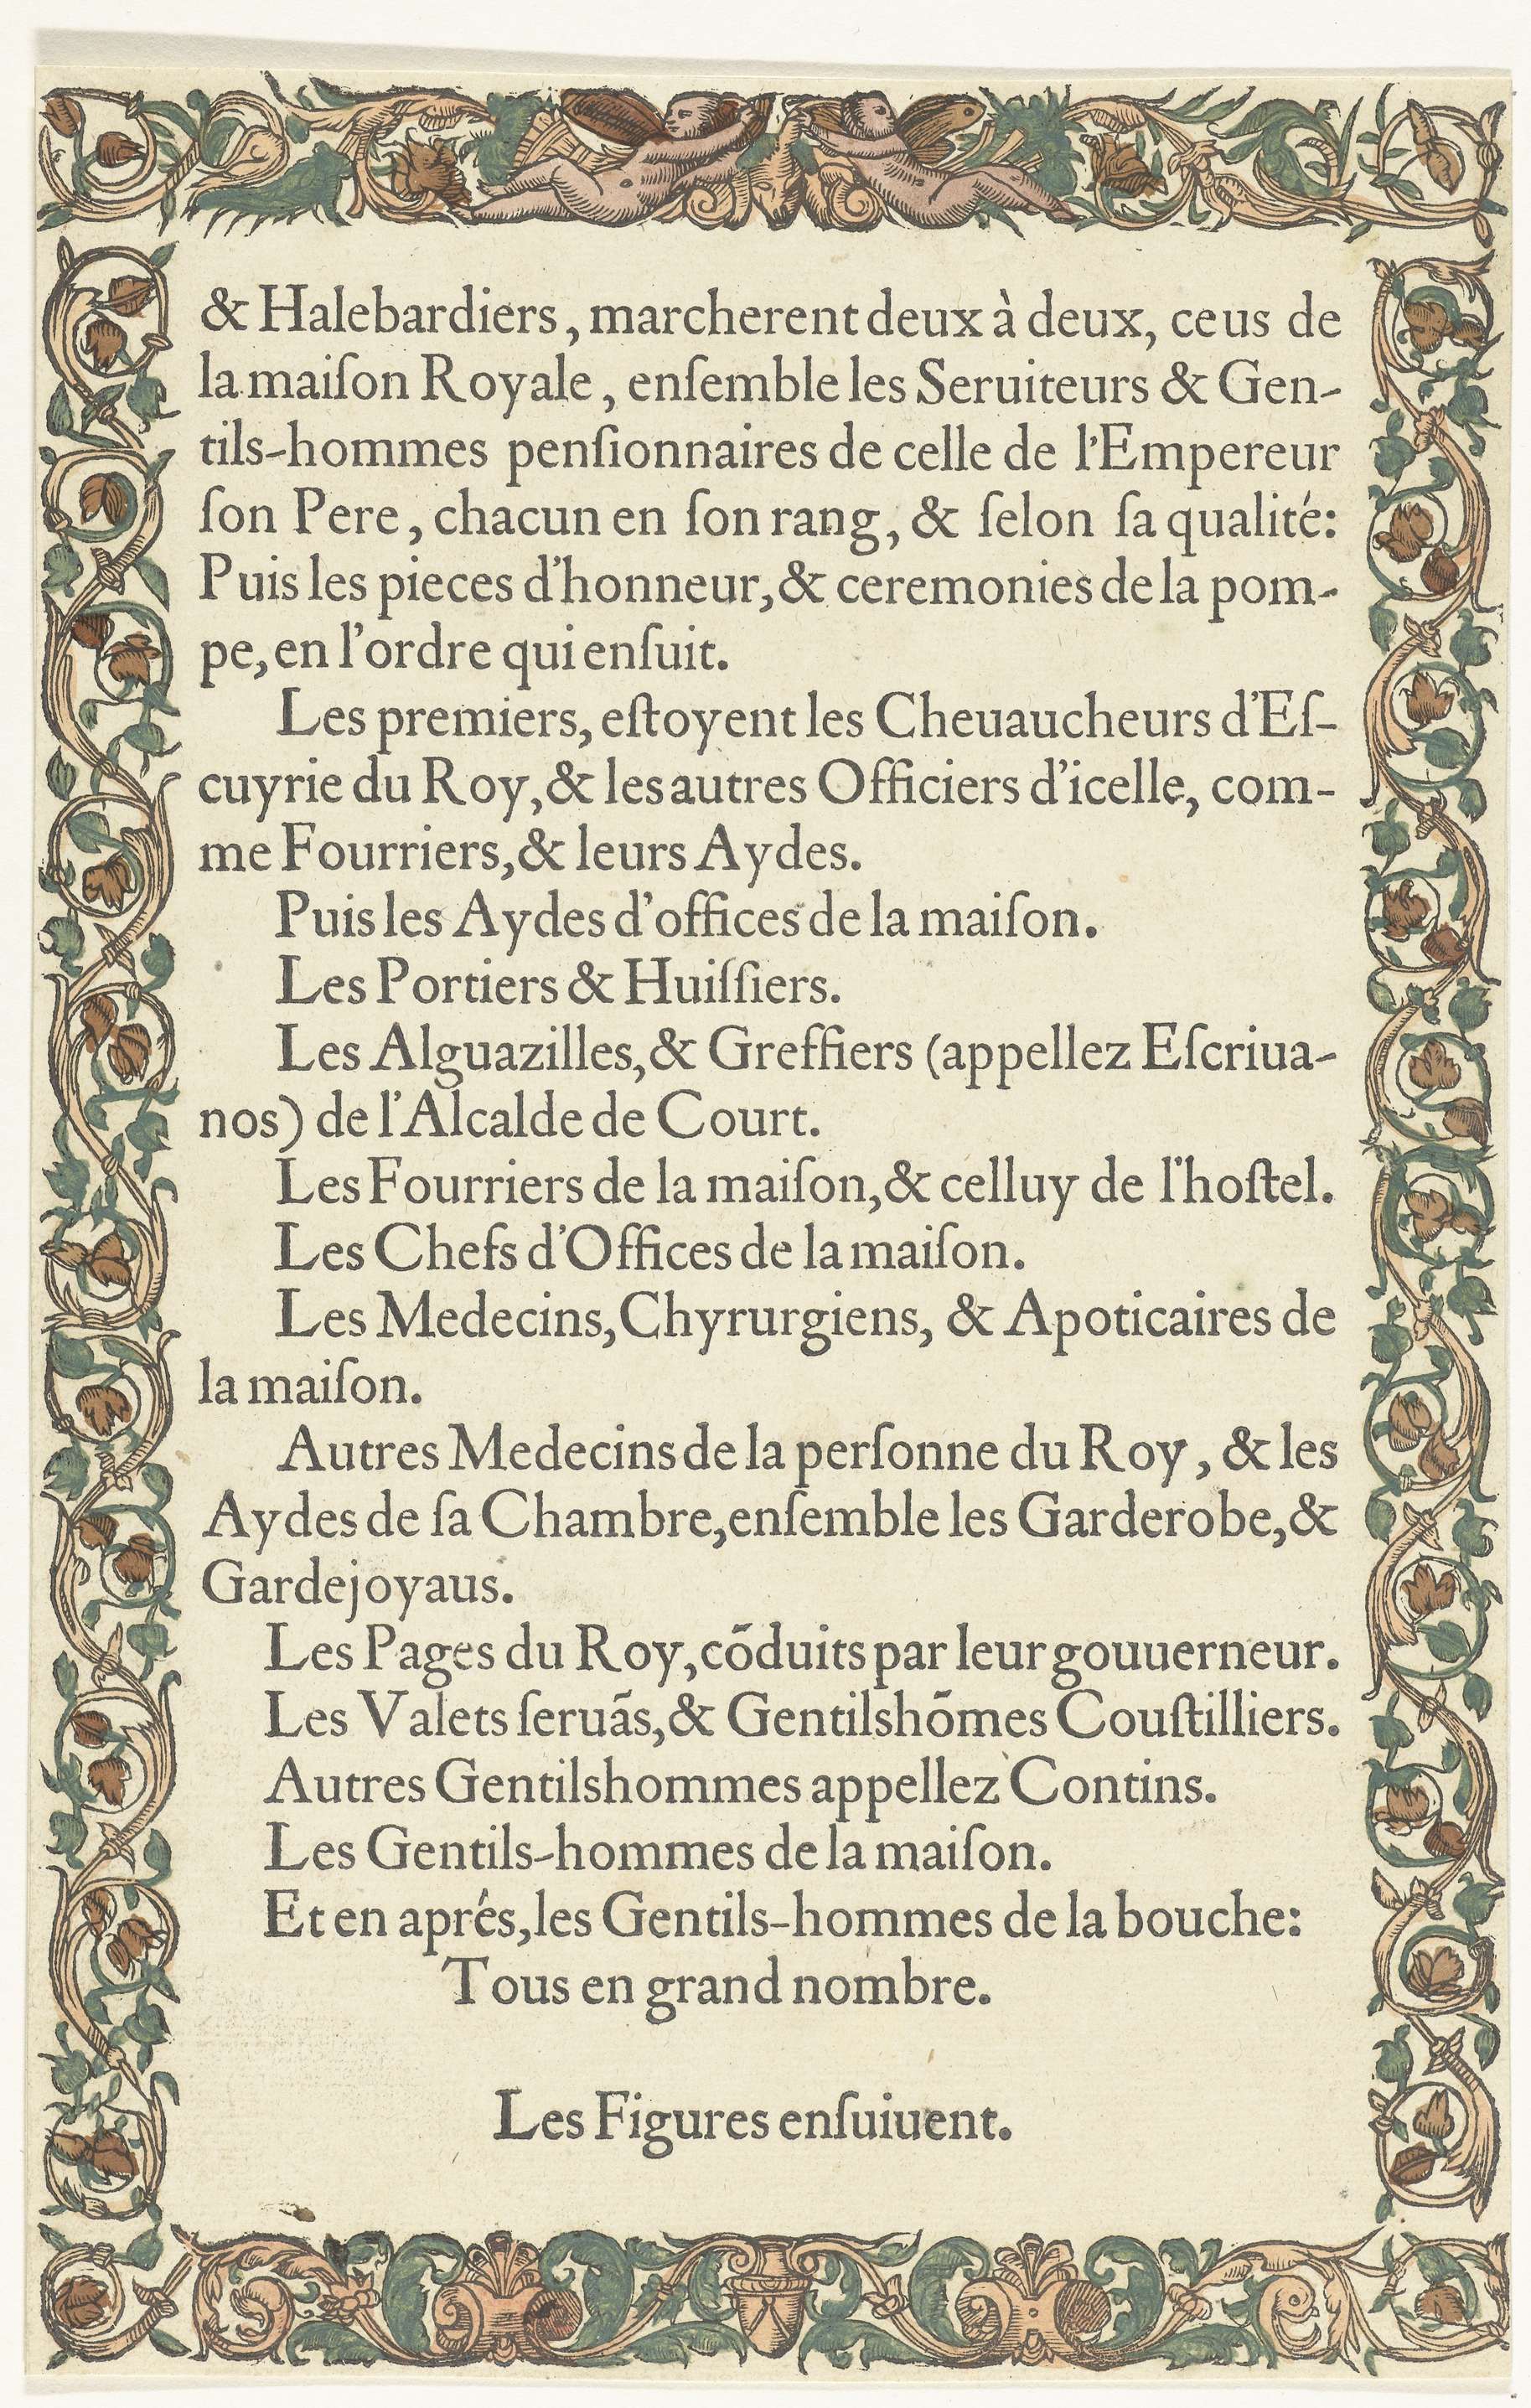 & Halebardiers, marcherent deux à deux, ceus de
la maiſon Royale, enſemble les Seruiteurs & Gen-
tils-hommes penſionnaires de celle de l'Empereur
ſon Pere, chacun en ſon rang, & ſelon ſa qualité:
Puis les pieces d'honneur, & ceremonies de la pom-
pe, en l'ordre qui enſuit.
Les premiers, eſtoyent les Cheuaucheurs d'Eſ-
cuyrie du Roy, & les autres Officiers d'icelle, com-
me Fourriers, & leurs Aydes.
Puis les Aydes d'offices de la maiſon.
Les Portiers & Huiſſiers.
Les Alguazilles, & Greffiers (appellez Eſcriua-
nos) de l'Alcalde de Court.
Les Fourriers de la maiſon, & celluy de l'hoſtel.
Les Chefs d'Offices de la maiſon.
Les Medecins, Chyrurgiens, & Apoticaires de
la maiſon.
Autres Medecins de la perſonne du Roy, & les
Aydes de ſa Chambre, enſemble les Garderobe, &
Gardejoyaus.
Les Pages du Roy, cōduits par leur gouuerneur.
Les Valets ſeruãs, & Gentilshōmes Couſtilliers.
Autres Gentilshommes appellez Contins.
Les Gentils-hommes de la maiſon.
Et en aprés, les Gentils-hommes de la bouche:
Tous en grand nombre.
Les Figures enſuiuent.